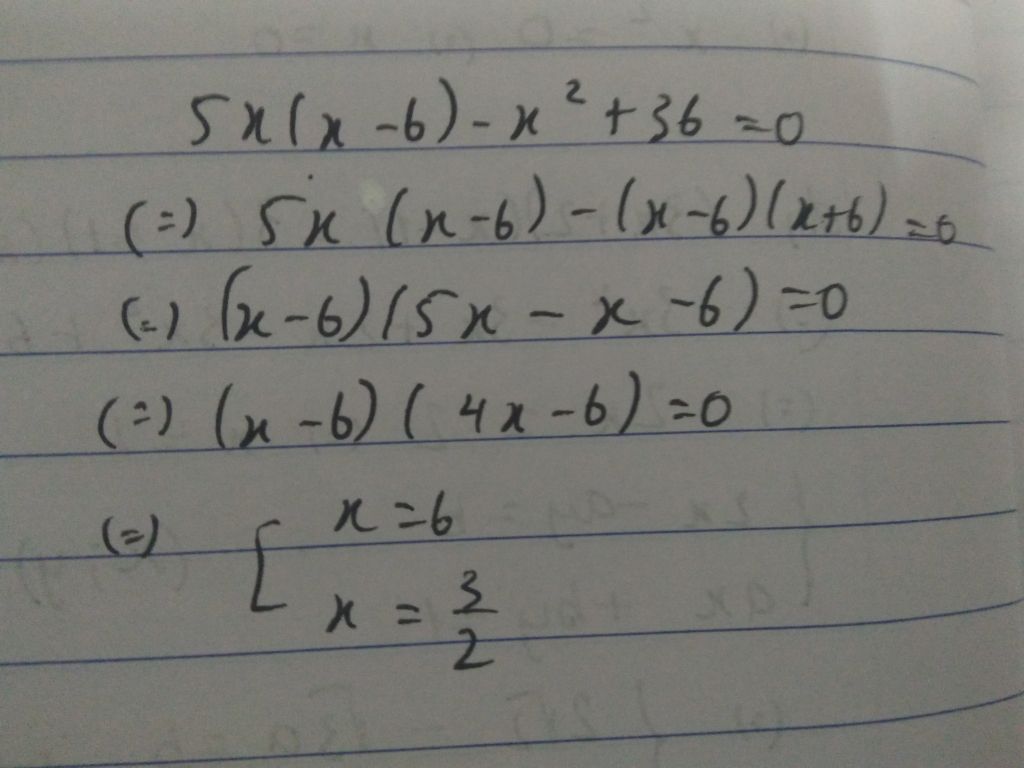 5x(x-6)-x²+36=0
(=) 5x (x-6)-(x-6)(x+6)=0
(=) (x-6)(5x-x-6)=0
(=) (x-6)(4x-6)=0
(=) [ x=6
x = 3/2